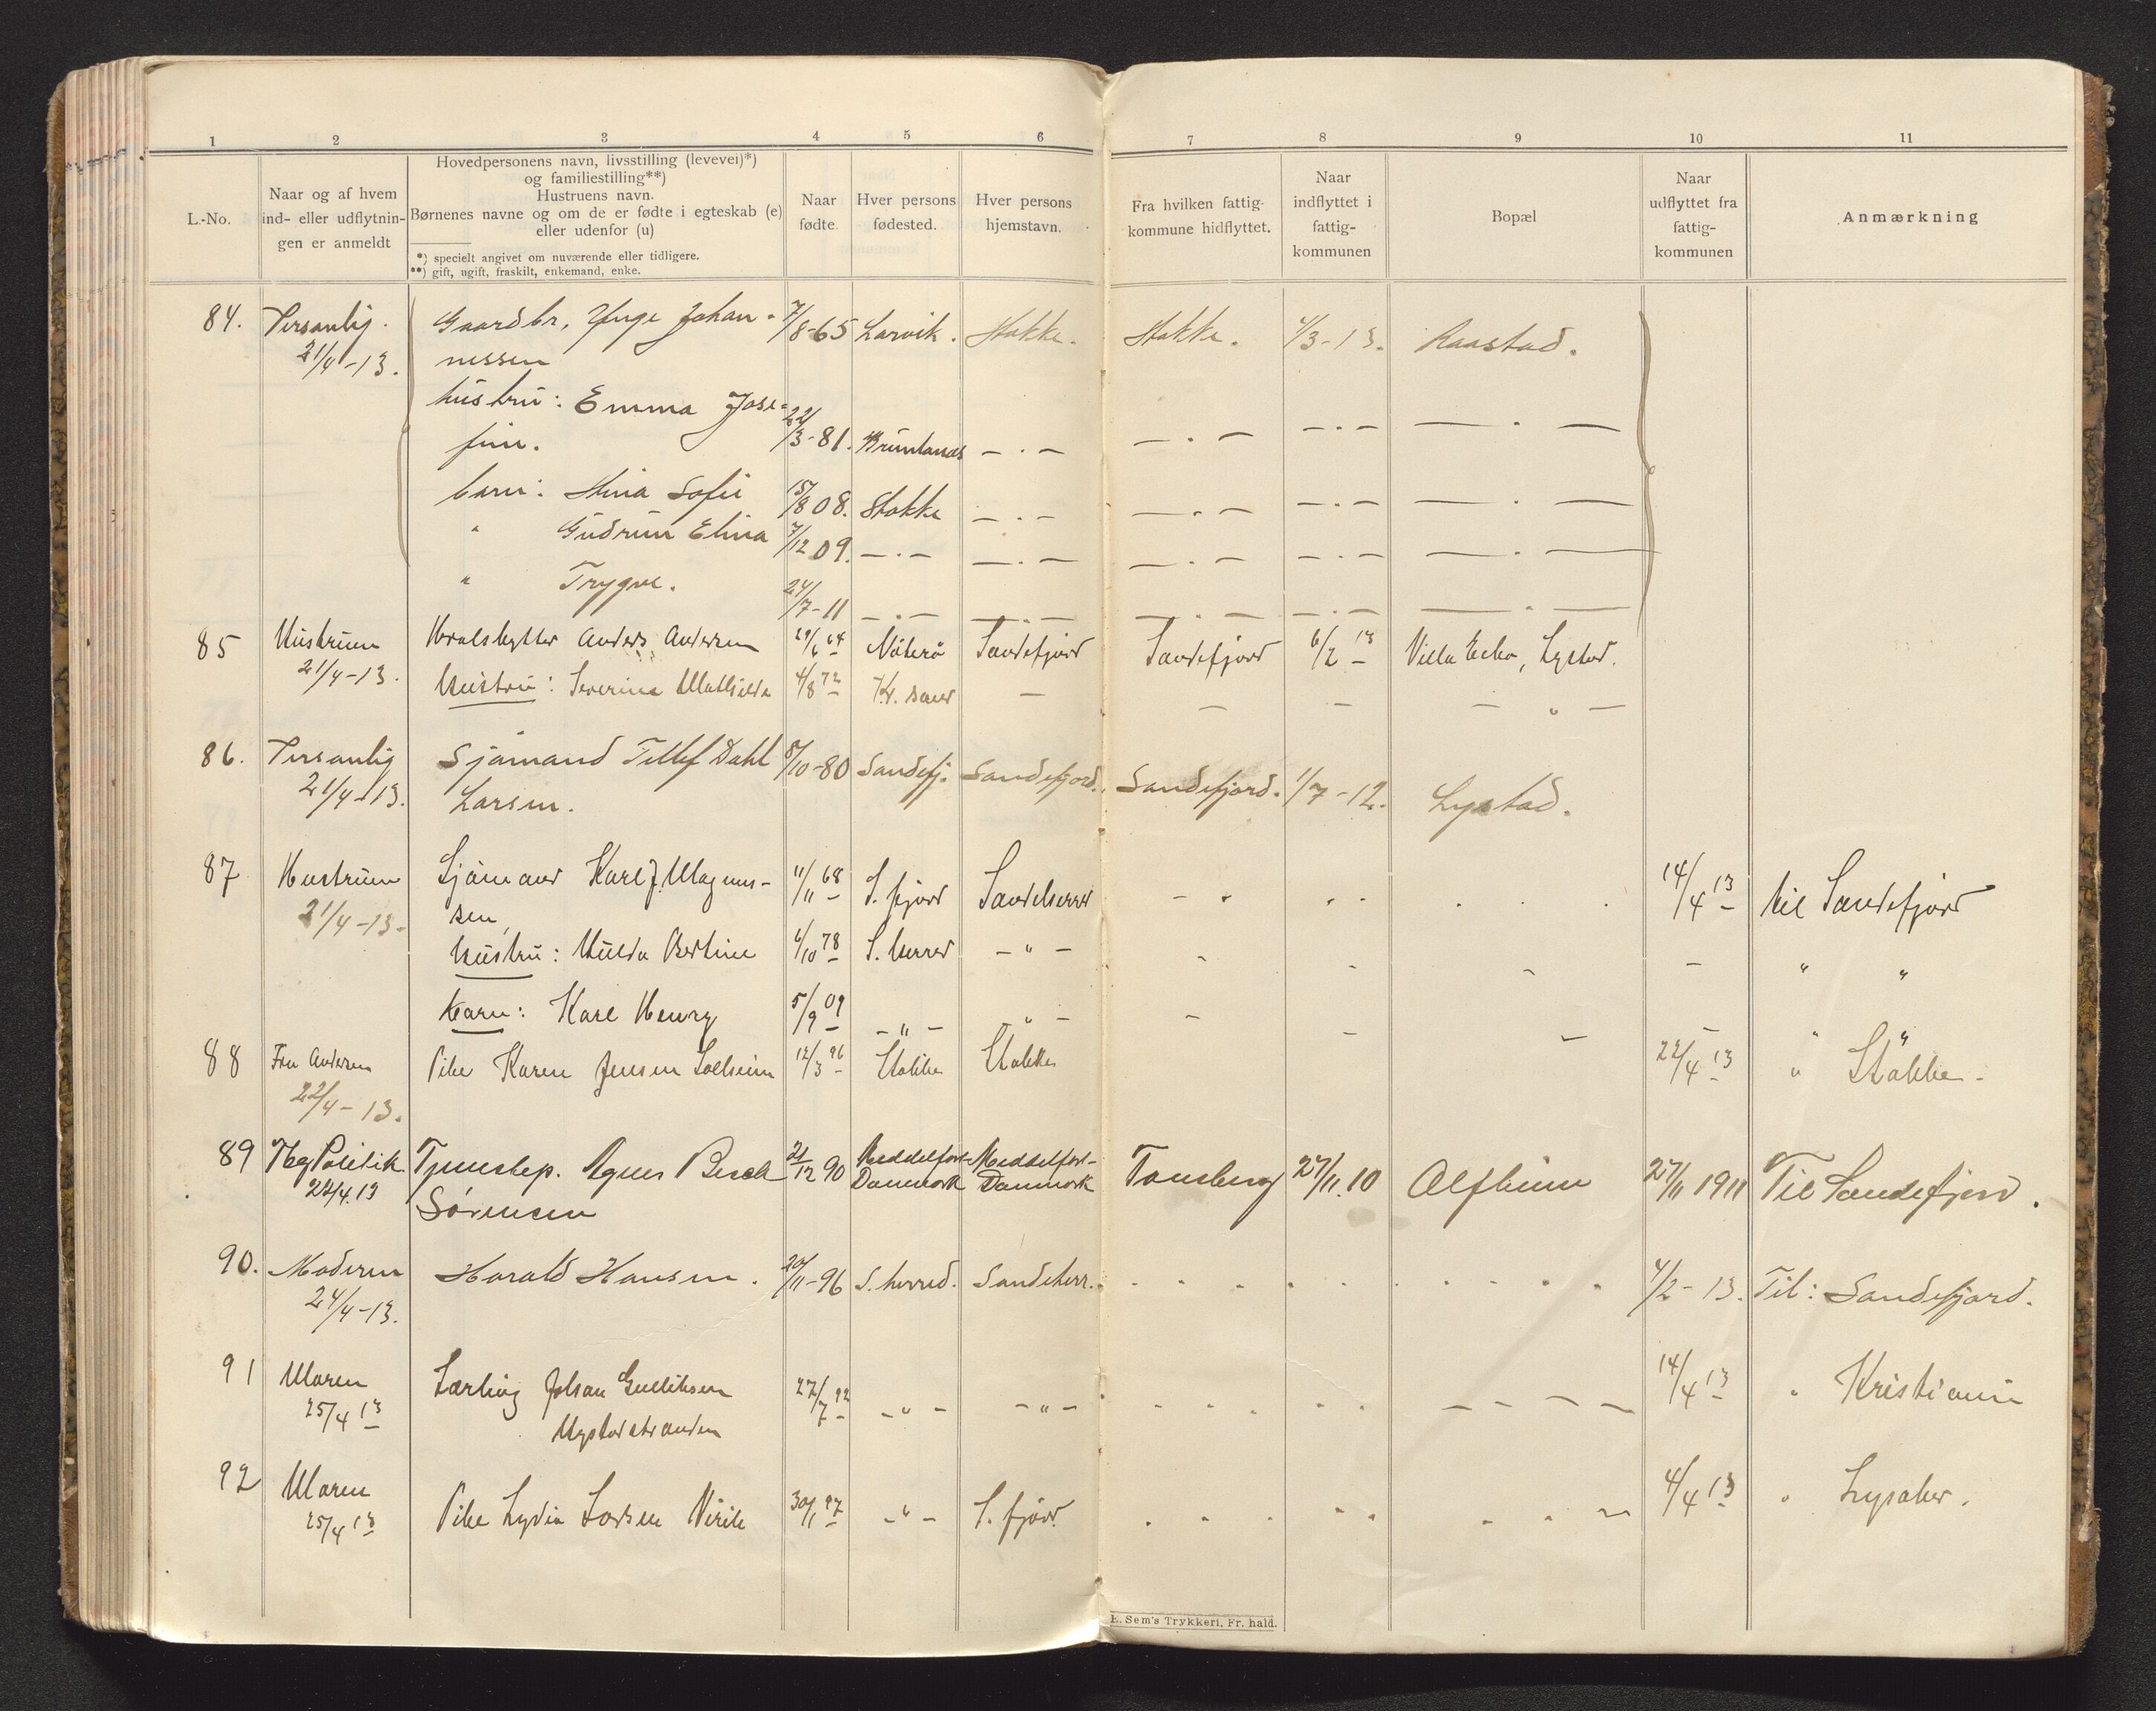 1 2 3 4 5 6 7 8 9 10 11
L.-No.
Naar og af hvem
ind- eller udflytnin-
gen er anmeldt
Hovedpersonens navn, livsstilling (levevei)*)
og familiestilling**)
Hustruens navn.
Børnenes navne og om de er fødte i egteskab (e)
eller udenfor (u)
*) specielt angivet om nuværende eller tidligere.
**) gift, ugift, fraskilt, enkemand, enke.
Naar
fødte.
Hver persons
fødested.
Hver persons
hjemstavn.
Fra hvilken fattig-
kommune hidflyttet.
Naar
indflyttet i
fattig-
kommunen
Bopæl
Naar
udflyttet fra
fattig-
kommunen
Anmærkning
84. Personlig. Gaardbr. Johan- 7/8-65 Larvik. Stokke. Stokke. 4/3-13. Raastad.
21/4-13. nessen
hustru: Emma Jose- 22/3-81. Brunlanes — . — — . — — . — — . —
fin.
barn: Stina Sofie 15/8 08. Stokke — . — — . — — . — — . —
" Gudrun Elina 7/12 09. — . — — . — — . — — . — — . —
" Trygve. 24/7-11 — . — — . — — . — — . — — . —
85 Hustruen Hvalskytter Anders Andersen 29/6 64 Nøterø Sandefjord Sandefjord 6/2 13 Villa Ekko, Lystad.
21/4-13. Hustru: Severine Mathilde 4/8 72 Kr. sand — — — — " —
86. Personlig Sjømand Tellef Dahl 8/10-80 Sandefj. Sandefjord. Sandefjord. 1/7-12. Lystad.
21/4-13. Larsen.
87 Hustruen Sjømand Karl J. Magnus- 11/11 68 S. fjord Sandeherred - " 14/4 13 til Sandefjord
21/4-13- sen,
Hustru: Hulda Bertine 6/10 78 S. herred - " - - - - - " "
barn: Karl Henry 5/9 09 - " - - " - - - - - " "
88 Fru Andersen Pike Karen Jensen Solheim 12/3 96 Stokke Stokke 22/4 13 " Stokke.
22/4-13.
89 Politik. Tjenestep. Agnes Beck 21/12 90 Meddelfart Meddelfart- Tønsberg 27/11.10 Alfheim 27/11 1911 Til Sandefjord.
22/4.13 Sørensen Danmark Danmark
90. Moderen Harald Hansen. 20/11-96 S. herred. Sandeherr. 4/2-13. Til: Sandefjord.
24/4-13.
91 Moren Lærling Johan Gulliksen 27/7 92 - " - - " - 14/4 13 " Kristiania
25/4 13 Nystadstranden
92 Moren Pike Lydia Larsen Virik 30/1 97 - " - S. fjord. 4/4 13 " Lysaker.
25/4 13
E. Sem's Trykkeri, Fr.hald.